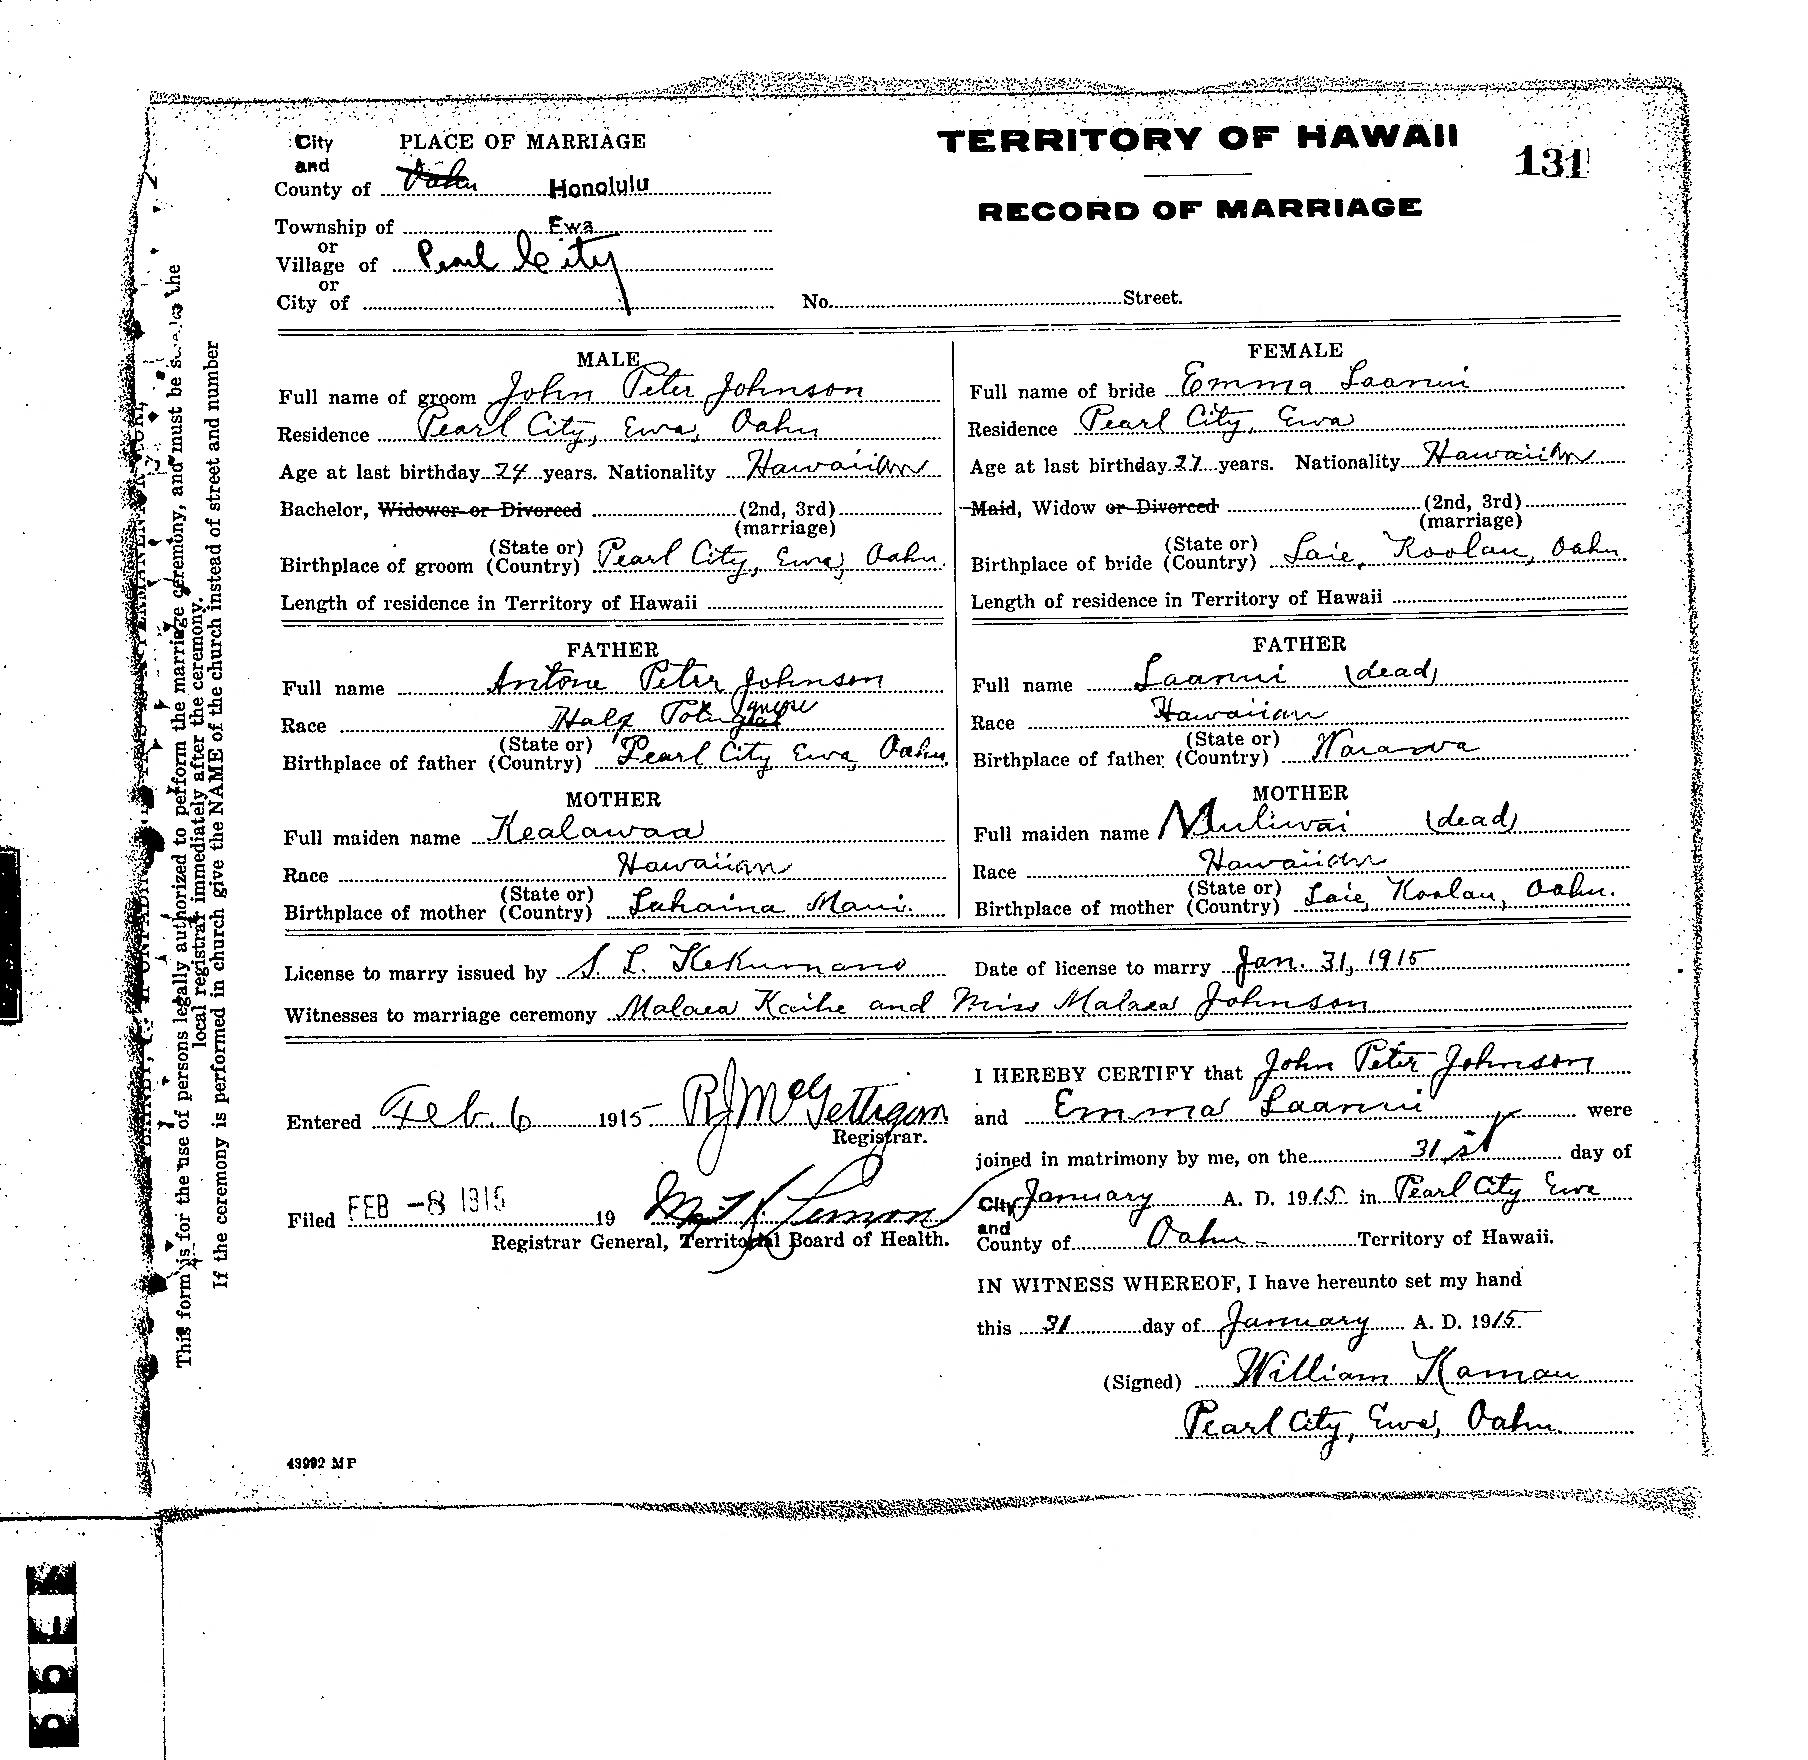 City PLACE OF MARRIAGE
and
County of Oahu Honolulu
Township of Ewa
or
Village of Pearl City
or
City of No. Street.
TERRITORY OF HAWAII
131
RECORD OF MARRIAGE
MALE
Full name of groom John Peter Johnson
Residence Pearl City, Ewa, Oahu
Age at last birthday 24 years. Nationality Hawaiian
Bachelor, Widower or Divorced (2nd, 3rd)
(marriage)
Birthplace of groom (State or) (Country) Pearl City, Ewa, Oahu.
Length of residence in Territory of Hawaii
FATHER
Full name Antone Peter Johnson
Race Half
Birthplace of father (State or) (Country) Pearl City Ewa, Oahu.
MOTHER
Full maiden name Kealawaa
Race Hawaiian
Birthplace of mother (State or) (Country) Lahaina Maui.
FEMALE
Full name of bride Emma Laanui
Residence Pearl City, Ewa
Age at last birthday 27 years. Nationality Hawaiian
Maid, Widow or Divorced (2nd, 3rd)
(marriage)
Birthplace of bride (State or) (Country) Laie, Koolau, Oahu.
Length of residence in Territory of Hawaii
FATHER
Full name Laanui (dead)
Race Hawaiian
Birthplace of father (State or) (Country)
MOTHER
Full maiden name Muliwai (dead)
Race Hawaiian
Birthplace of mother (State or) (Country) Laie, Koolau, Oahu.
License to marry issued by S. L. Kekumano Date of license to marry Jan. 31, 1915
Witnesses to marriage ceremony Malaea Kaihe and Miss Malaea Johnson
Entered Feb. 6 1915 R J McGettigan
Registrar.
Filed FEB -8 1915 19
Registrar General, Territorial Board of Health.
I HEREBY CERTIFY that John Peter Johnson
and Emma Laanui were
joined in matrimony by me, on the 31st day of
City January A. D. 1915 in Pearl City Ewa
and
County of Oahu Territory of Hawaii.
IN WITNESS WHEREOF, I have hereunto set my hand
this 31 day of January A. D. 1915
(Signed) William Kamau
Pearl City, Ewa, Oahu.
43992 MP
This form is for the use of persons legally authorized to perform the marriage ceremony, and must be to the
local registrar immediately after the ceremony.
If the ceremony is performed in church give the NAME of the church instead of street and number